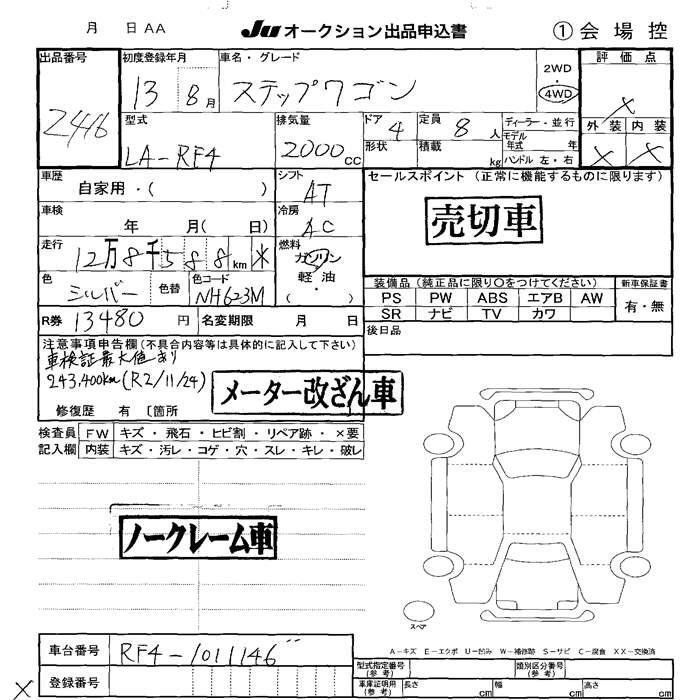 月 日 AA JU オークション出品申込書 ①会場控
出品番号 初度登録年月 車名・グレード 2WD 評価点
2416 13 8月 ステップワゴン 4WD ×
型式 排気量 ドア 4 定員 8人 ディーラー・並行 外装 内装
LA-RF4 2000cc 形状 積載 kg モデル年式 年 × ×
ハンドル 左・右
車歴 シフト セールスポイント (正常に機能するものに限ります)
自家用・( ) AT
車検 冷房 売切車
年 月( 日) AC
走行 燃料
12万8千588km ※ ガソリン
軽油
・( )
色 シルバー 色替 色コード NH623M
装備品(純正品に限り〇をつけてください) 新車保証書
PS PW ABS エアB AW 有・無
SR ナビ TV カワ
R券 13480円 名変期限 月 日 後日品
注意事項申告欄(不具合内容等は具体的に記入して下さい)
車検証最大値あり
243,400km(R2/11/24) メーター改ざん車
修復歴 有 〔箇所
検査員 FW キズ・飛石・ヒビ割・リペア跡・×要
記入欄 内装 キズ・汚レ・コゲ・穴・スレ・キレ・破レ
ノークレーム車
スペア
A-キズ E-エクボ U-凹み W-補修跡 S-サビ C-腐食 XX-交換済
車台番号 RF4-1011146 型式指定番号(参考) 類別区分番号(参考)
× 登録番号 車庫証明用(参考) 長さ cm 幅 cm 高さ cm